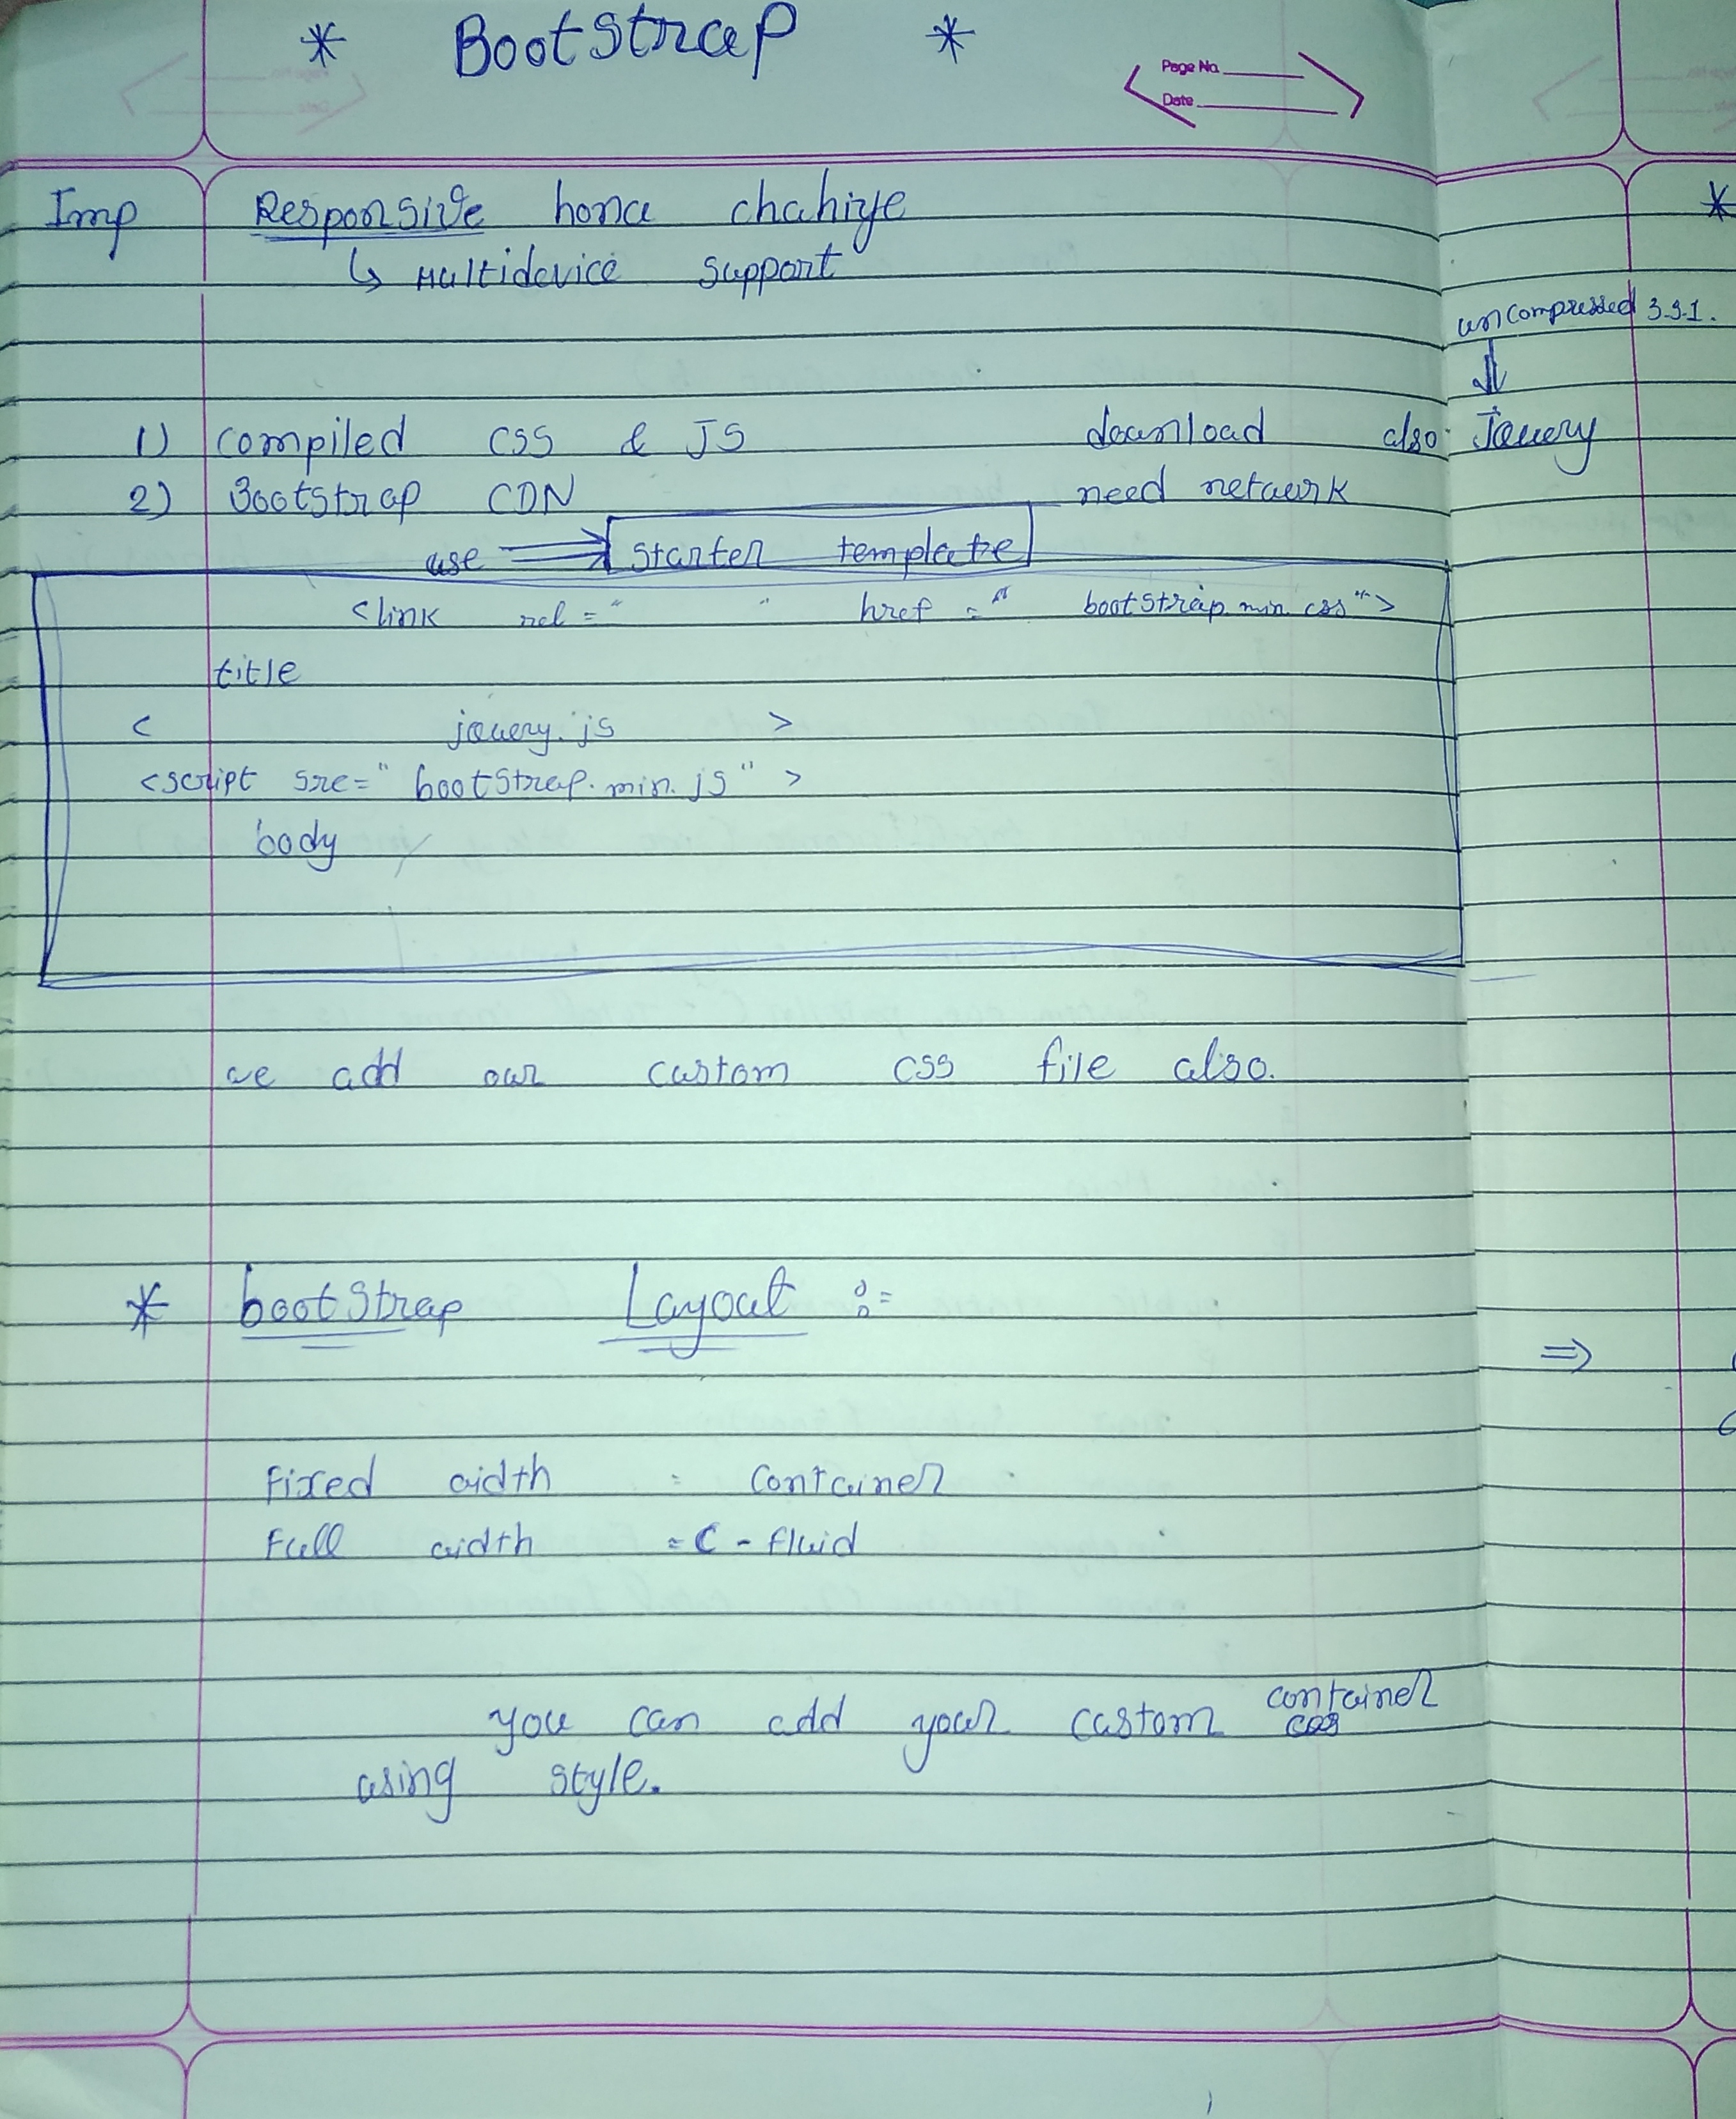 * Bootstrap *
Page No.
Date
Imp Responsive hona chahiye
↳ Multidevice support
uncompressed 3.3.1.
⇓
1) compiled css & JS download also jquery
2) Bootstrap CDN need network
use ⇒ starter template
<link rel = " " href = " bootstrap.min css">
title
< jquery.js >
<script src=" bootstrap.min.js" >
body
we add our custom css file also.
* bootstrap Layout :=
⇒
Fixed width = container
Full width = C - fluid
you can add your custom container
using style.